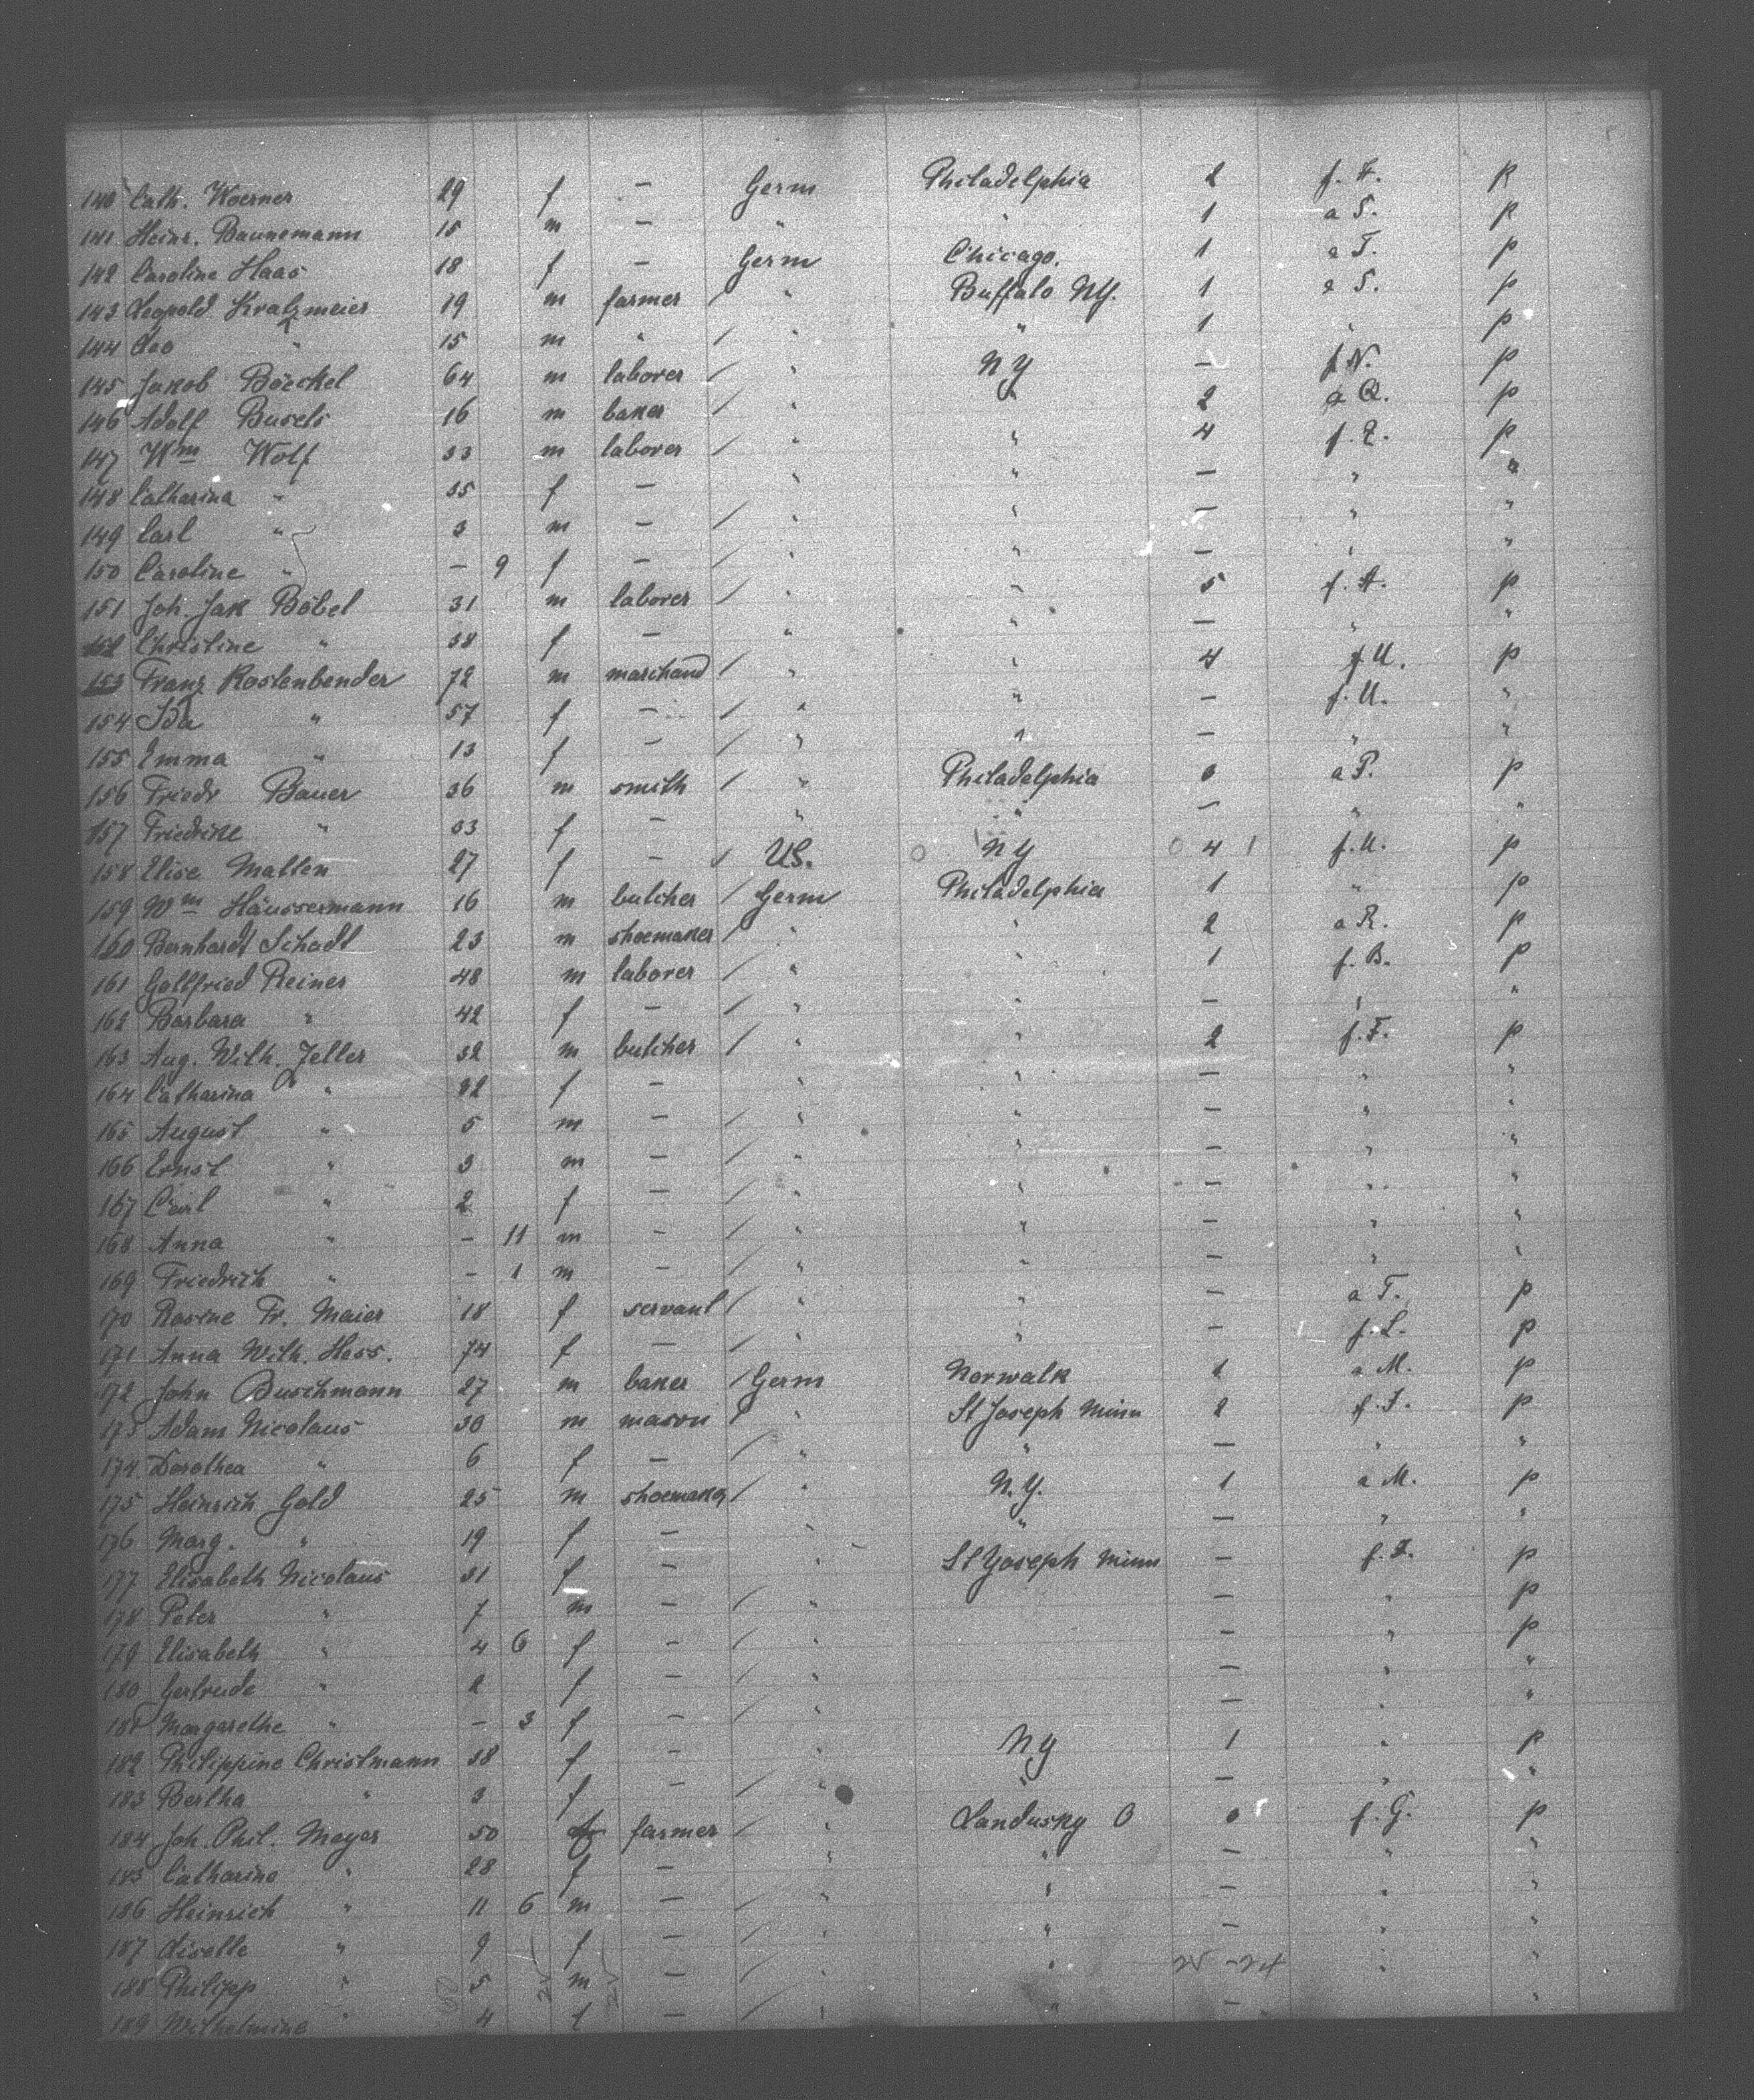 140 Cath. Woerner 29 f — Germ Philadelphia 2 f. H. p
141 Heinr. Baunemann 15 m — " " 1 a S. p
142 Caroline Haas 18 f — Germ Chicago. 1 a T. p
143 Leopold Kratzmeier 19 m farmer / " Buffalo NY. 1 a S. p
144 Leo " 15 m " / " 1 " p
145 Jakob Böeckel 64 m laborer / " NY — f N. p
146 Adolf Busels 16 m baker / " " 2 a Q. p
147 Wm Wolf 33 m laborer / " " 4 f. Q. p
148 Catharina " 35 f — " " — " "
149 Carl " 3 m — / " " — " "
150 Caroline " — 9 f — " " — " "
151 Joh. Jak Böbel 31 m laborer / " " 5 f. A. p
152 Christine " 38 f — " " — " "
153 Franz Rostenbender 72 m marchand / " " 4 f U. p
154 Ida " 57 f — / " " — f. U. "
155 Emma " 13 f — / " " — " "
156 Friedr Bauer 36 m smith / " Philadelphia a P. p
157 Friedrike " 33 f — " " — " "
158 Elise Malten 27 f — / US. NY 4 f. U. p
159 Wm Häussermann 16 m butcher / Germ Philadelphia 1 " p
160 Bernhardt Schadt 23 m shoemaker / " " 2 a R. p
161 Gottfried Reiner 48 m laborer / " " 1 f. B. p
162 Barbara " 42 f — / " " — " "
163 Aug. Wilh. Zeller 32 m butcher / " " 2 f. F. p
164 Catharina " 22 f — " " — " "
165 August " 5 m — / " " — " "
166 Ernst " 3 m — / " " — " "
167 Carl " 2 f — / " " — " "
168 Anna " — 11 m — / " " — " "
169 Friedrich " — 1 m — / " " — " "
170 Rosine Fr. Maier 18 f servant / " " — a T. p
171 Anna Wilh. Hess. 74 f — / " " — f. L. p
172 John Buschmann 27 m baker / Germ Norwalk 1 a M. p
173 Adam Nicolaus 30 m mason / " St Joseph Minn 2 f. I. p
174 Dorothea " 6 f — / " " — " "
175 Heinrich Gold 25 m shoemaker / " N.Y. 1 a M. p
176 Marg. " 19 f — " " — " "
177 Elisabeth Nicolaus 31 f — " St Joseph Minn — f. I. p
178 Peter " 7 m — / " — " p
179 Elisabeth " 4 6 f — / " — " p
180 Gertrude " 2 f — / " — " "
181 Margarethe " — 3 f — / " — " "
182 Philippine Christmann 38 f — " NY 1 " p
183 Bertha " 3 f — / " " — " "
184 Joh. Phil. Mayer 50 farmer / " Sandusky O f. G. p
185 Catharine " 28 f — " " — " "
186 Heinrich " 11 6 m — / " " — " "
187 Liselle " 9 f — / " " — " "
188 Philipp " 5 m — / " " " "
189 Wilhelmine " 4 f — / " " — "